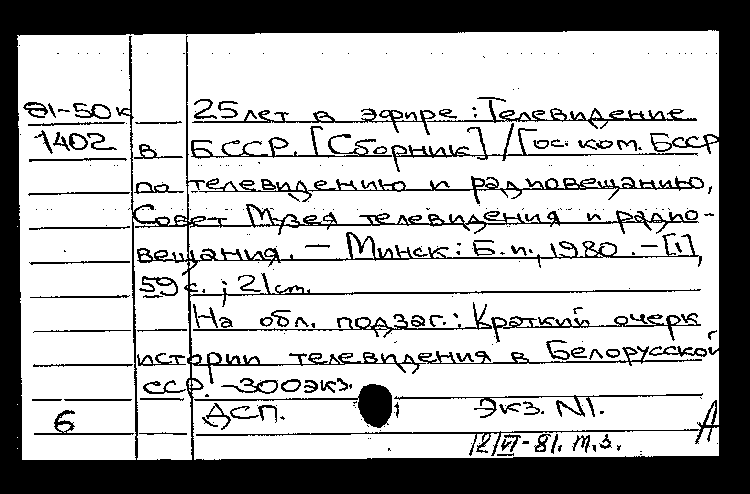 81-50к 25 лет в эфире: Телевидение
1402 в БССР. [Сборник] / Гос. ком. БССР
по телевидению и радиовещанию,
Совет Музея телевидения и радио-
вещания. — Минск: Б. и., 1980. — [1],
59 с.; 21 см.
На обл. подзаг.: Краткий очерк
истории телевидения в Белорусской
ССР. — 300 экз.
6 ДСП. Экз. N1.
12/VI-81. т.з. А